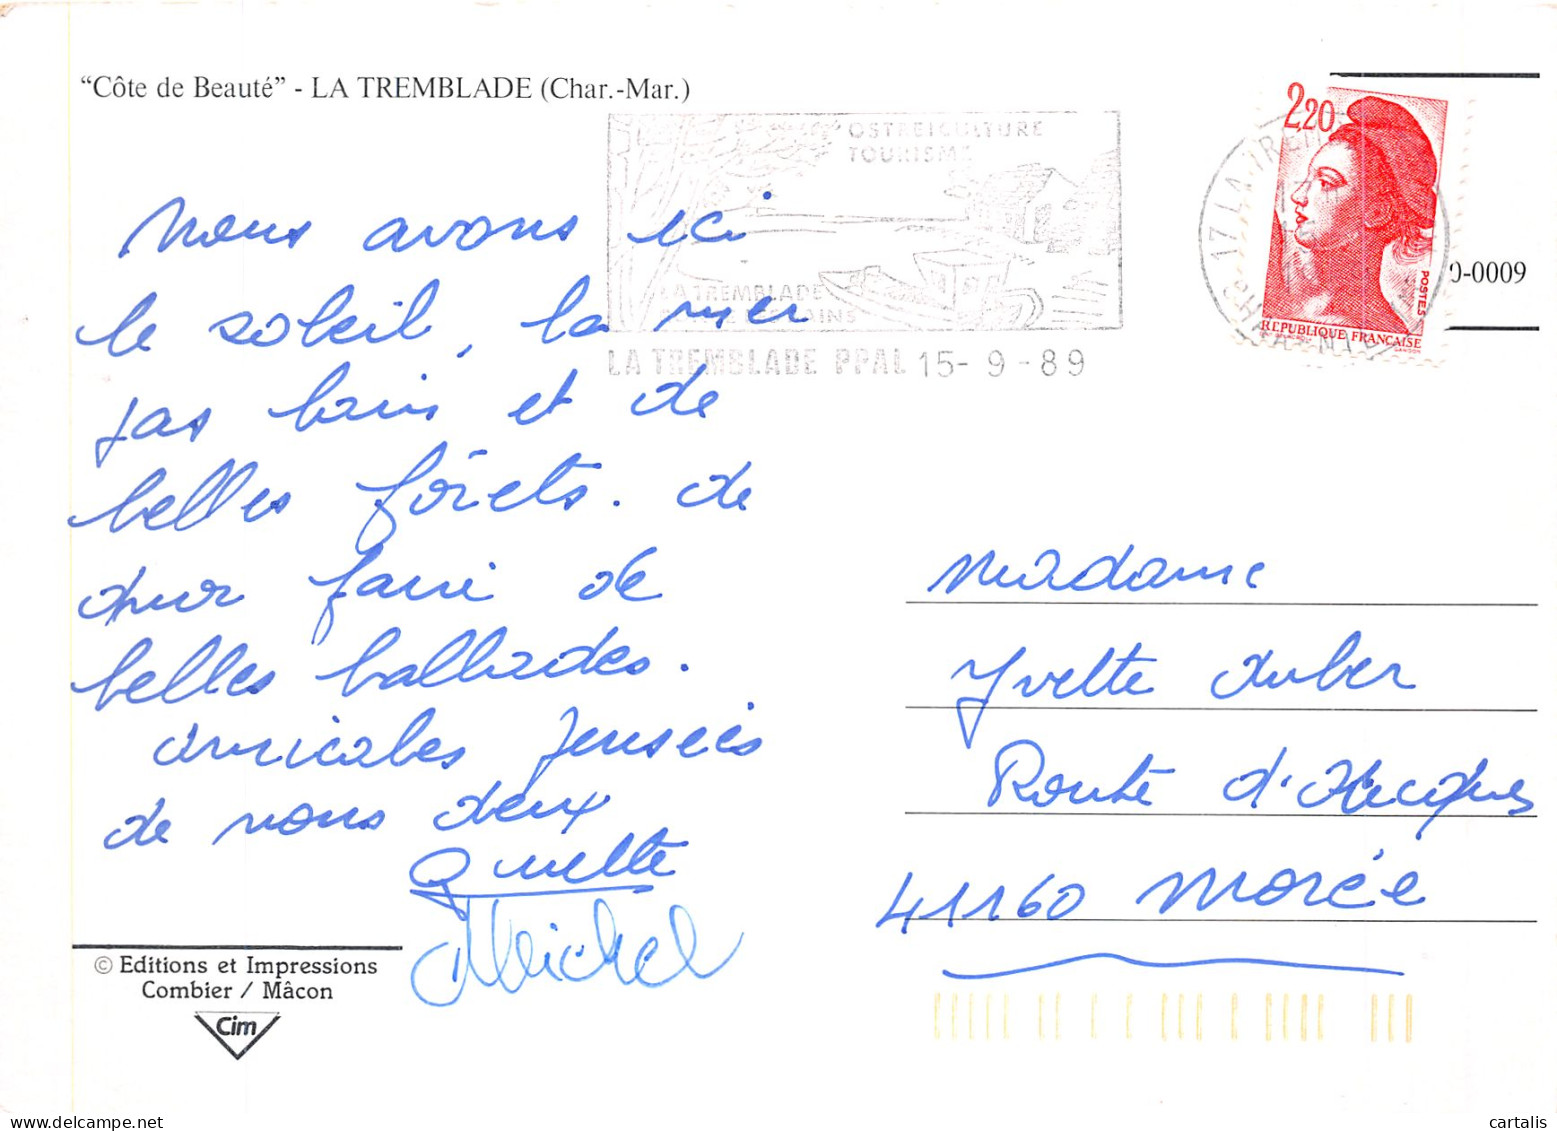 “Côte de Beauté” - LA TREMBLADE (Char.-Mar.)
OSTREICULTURE
TOURISME
LA TREMBLADE
LA TREMBLADE PPAL 15-9-89
2,20
POSTES
REPUBLIQUE FRANÇAISE
17 LA TREM
0-0009
Nous avons ici
le soleil, la mer
pas loin et de
belles fôrets. de
faire de
belles ballades.
amicales pensées
de nous deux
Michel
Madame
Yvette Auber
Route d'
41160 Morée
© Editions et Impressions
Combier / Mâcon
Cim
cartalis